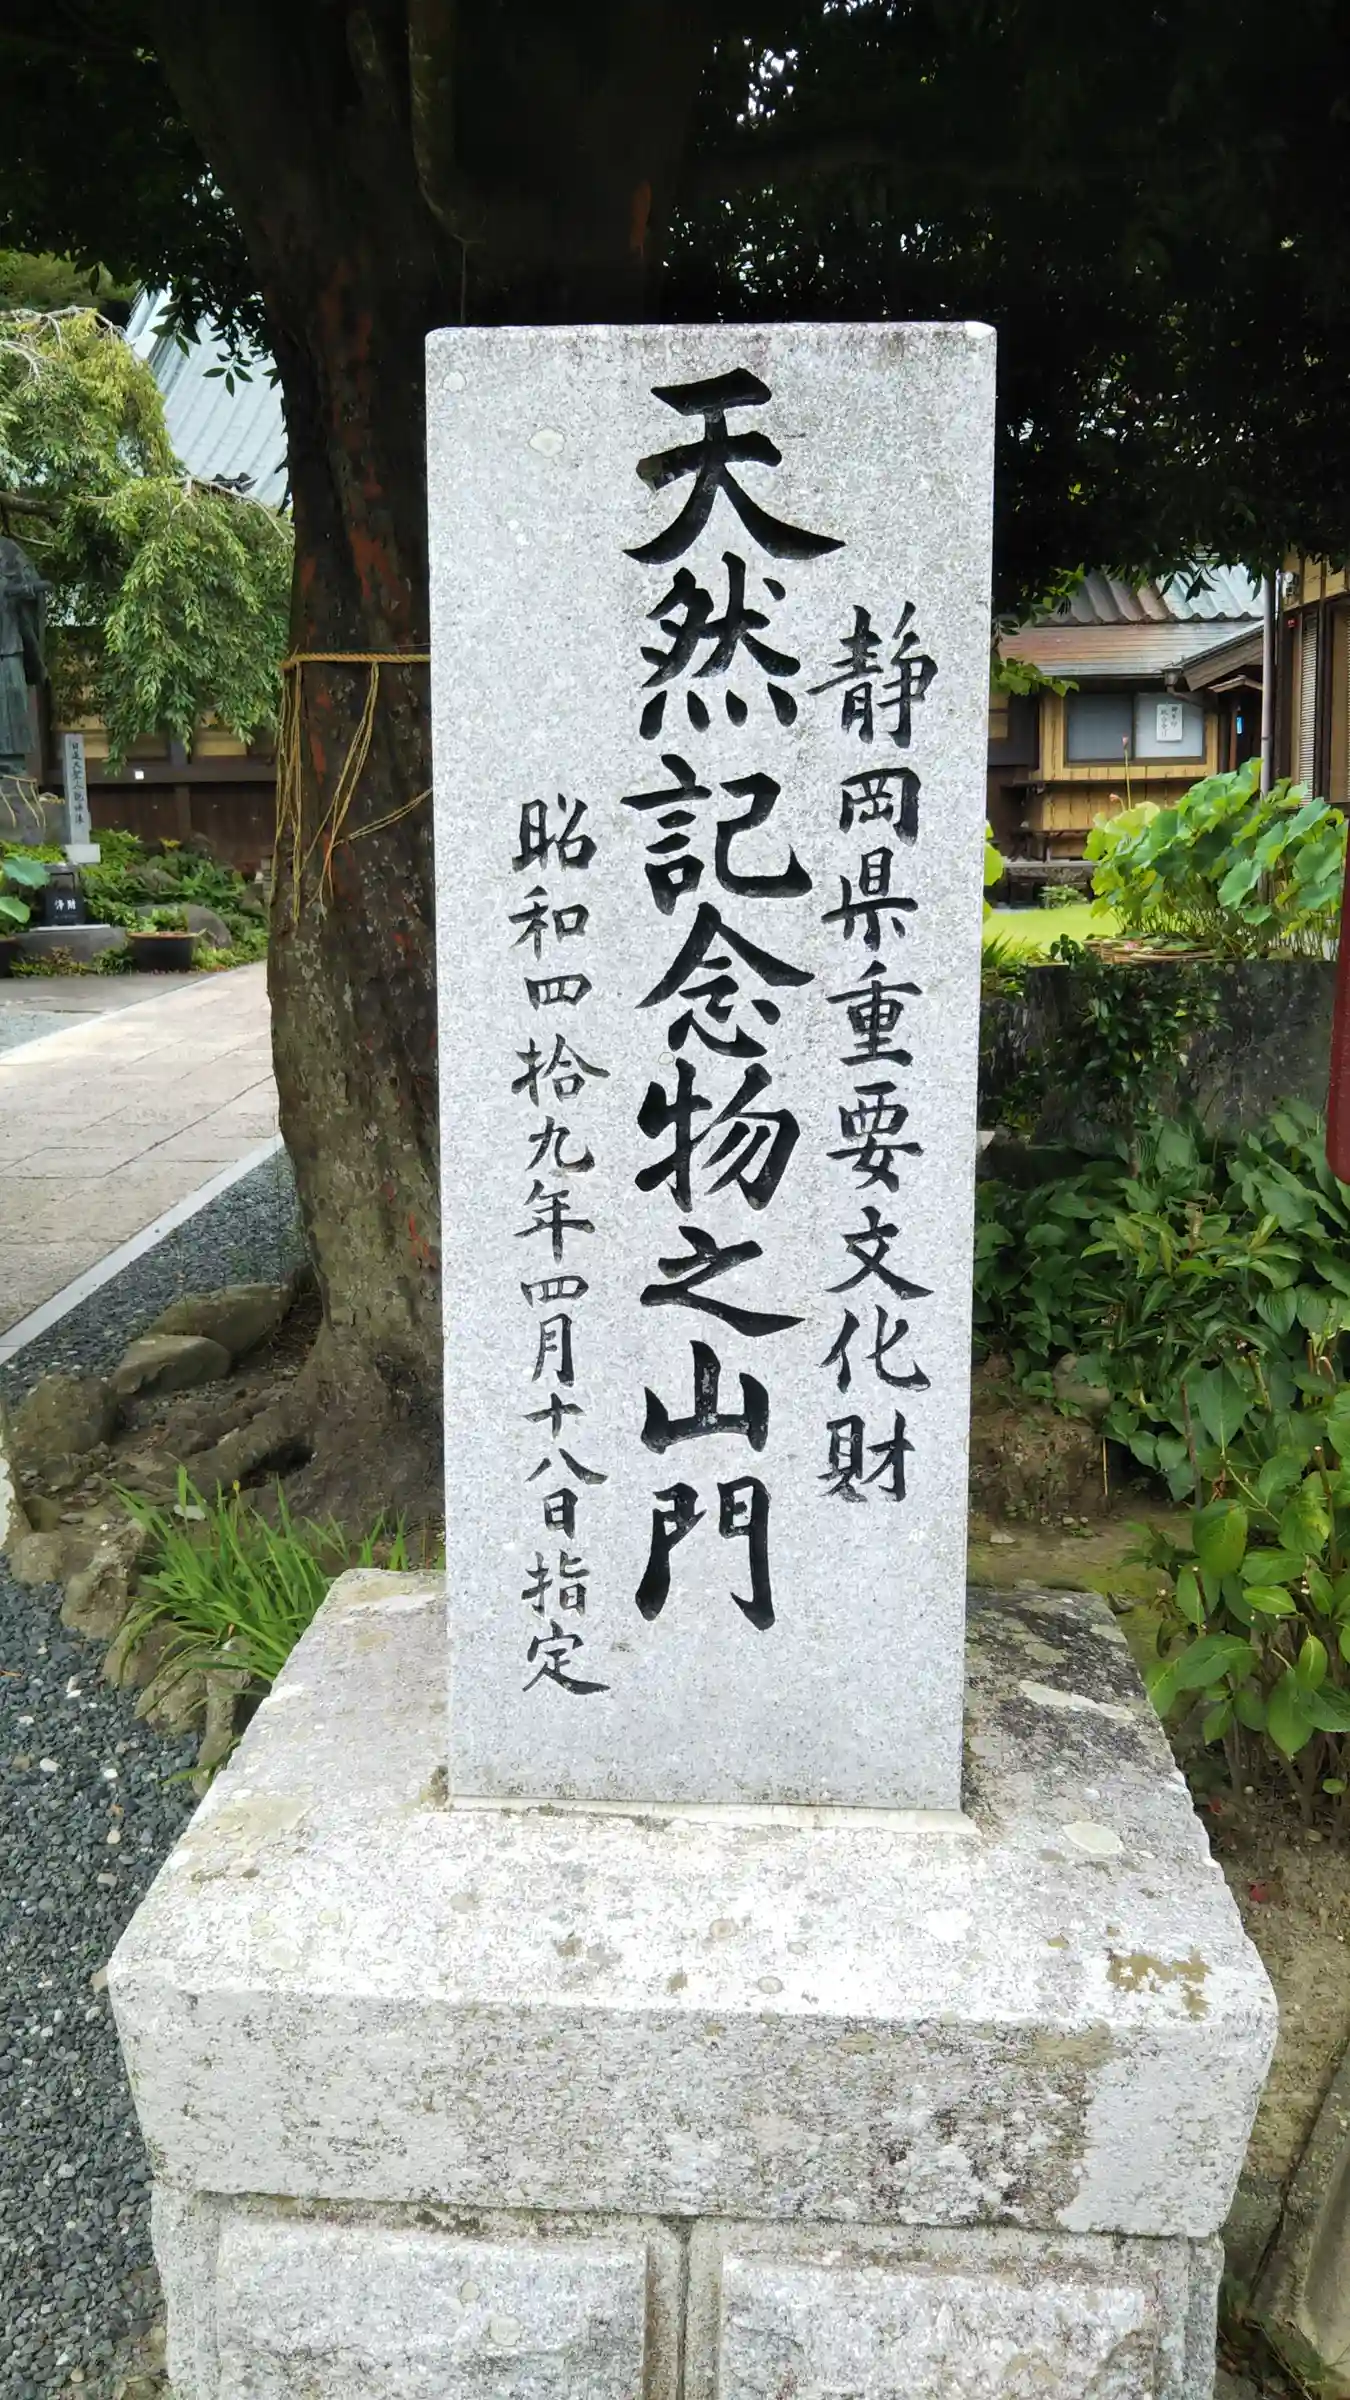 静岡県重要文化財
天然記念物之山門
昭和四拾九年四月十八日指定
浄財